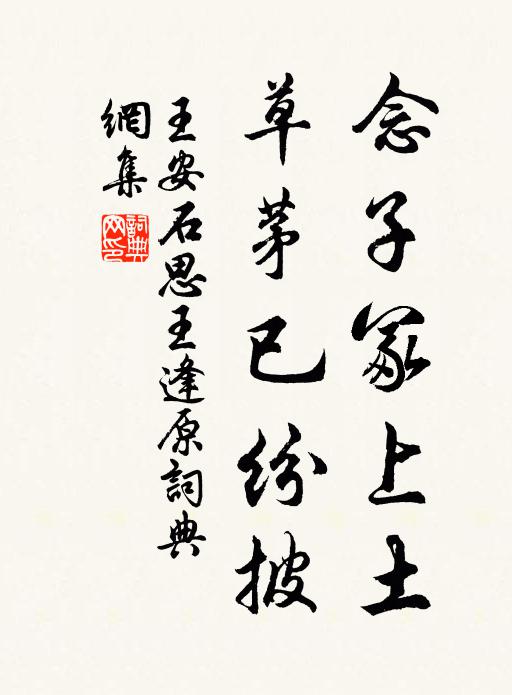 念子冢上土
草茅已纷披
王安石思王逢原詞典
網集
詞典網印